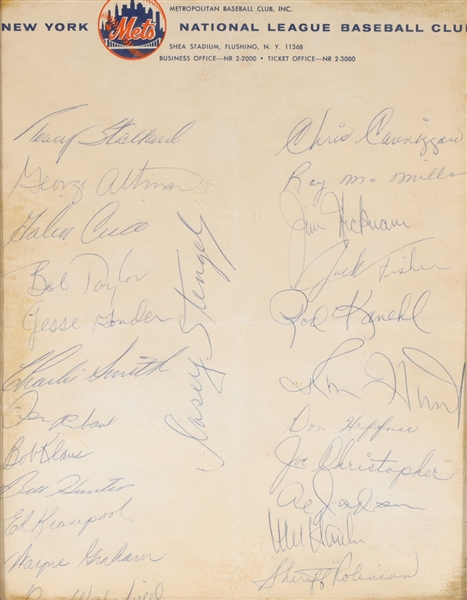 METROPOLITAN BASEBALL CLUB, INC.
NEW YORK Mets NATIONAL LEAGUE BASEBALL CLU
SHEA STADIUM, FLUSHING, N. Y. 11368
BUSINESS OFFICE—NR 2-2000 • TICKET OFFICE—NR 2-3000
Tracy Stallard
George Altman
Galen Cisco
Bob Taylor
Jesse Gonder
Charlie Smith
Bob Klaus
Bill Hunter
Ed Kranepool
Wayne Graham
Casey Stengel
Chris Cannizzaro
Roy McMillan
Jim Hickman
Jack Fisher
Rod Kanehl
Ron Hunt
Don Heffner
Joe Christopher
Al Jackson
Sheriff Robinson